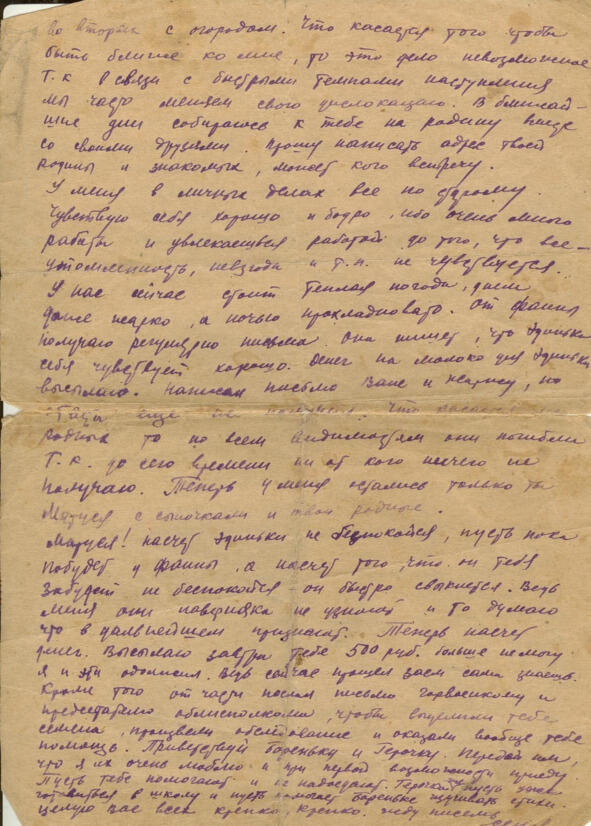 во вторых с огородом. Что касается того чтобы
быть ближе ко мне, то это дело невозможное
т.к в связи с быстрыми темпами наступления
мы часто меняем свою дислокацию. В ближай-
шие дни собираюсь к тебе на родину вместе
со своими друзьями. Прошу написать адрес твоей
родины и знакомых, может кого встречу.
У меня в личных делах все по старому.
Чувствую себя хорошо и бодро, ибо очень много
работы и увлекаешься работой до того, что все
утомленность, невзгоды и т.п. не чувствуется.
У нас сейчас стоит теплая погода, днем
даже жарко, а ночью прохладновато. От Фаины
получаю регулярно письма. Она пишет, что Эдинька
себя чувствует хорошо. Денег на молоко для Эдиньки
высылаю. Написал письмо Вале и но
еще не Что касается
родных то по всем видимостям они погибли
т.к. до сего времени ни от кого ничего не
получаю. Теперь у меня остались только ты
Матуся с сыночками и твои родные.
Матуся! насчет Эдиньки не беспокойся, пусть пока
побудет у Фаины, а насчет того, что он тебя
забудет не беспокойся - он быстро свыкнется. Ведь
меня они наверняка не узнают и то думаю
что в дальнейшем признают. Теперь насчет
денег. Высылаю завтра тебе 500 руб. больше не могу
я и эти одолжил. Ведь сейчас прошел заем сама знаешь.
Кроме того от части послал письмо горвоенкому и
председателю облисполкома, чтобы выделили тебе
семена, произвели обследование и оказали вообще тебе
помощь. Приветствуй Бореньку и Герочку. Передай им,
что я их очень люблю и при первой возможности приеду.
Пусть тебе помогают и не надоедают. пусть уже
готовиться в школу и пусть помогает Бореньке изучивать стихи.
целую вас всех крепко, крепко. жду писем